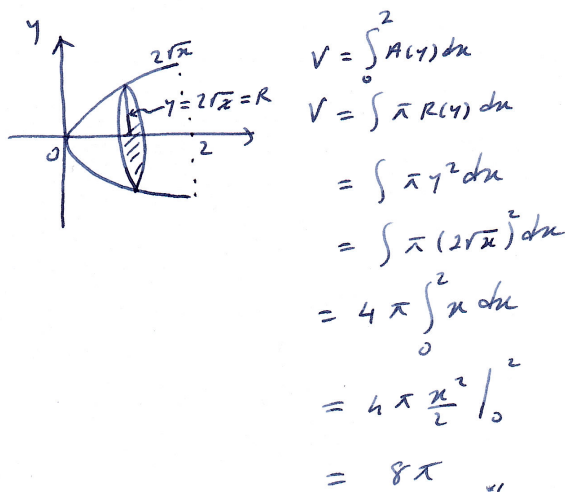 y
2√x
y = 2√x = R
0
2
V = ∫₀² A(y) dx
V = ∫ π R(y) dx
= ∫ π y² dx
= ∫ π (2√x)² dx
= 4 π ∫₀² x dx
= 4 π x²/2 |₀²
= 8π